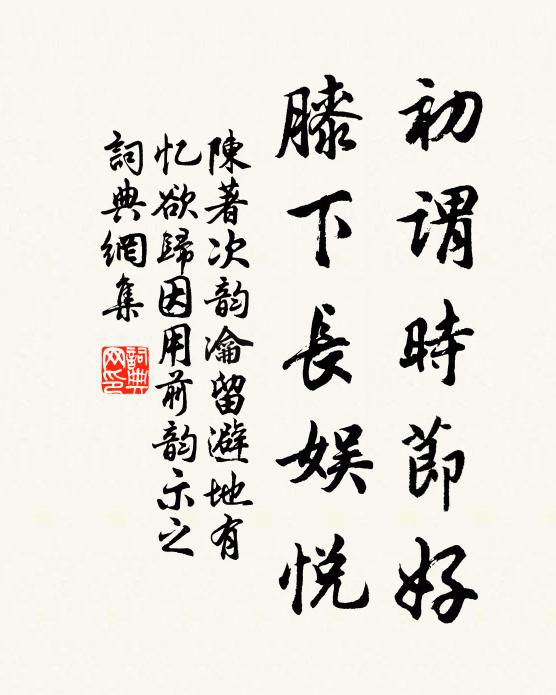 初謂時節好
膝下長娛悅
陳著次韵瀹留避地有
忆欲歸因用前韵示之
詞典網集
詞典網印